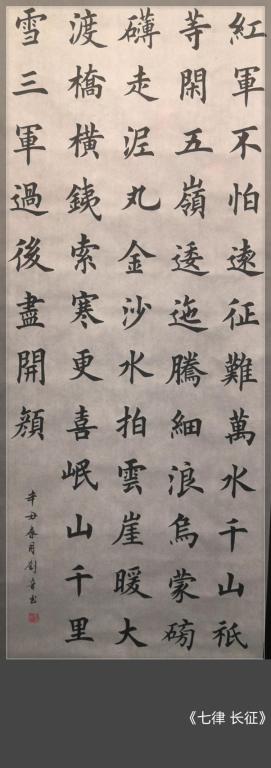 紅軍不怕遠征難萬水千山祇
等閑五嶺逶迤騰細浪烏蒙磅
礴走泥丸金沙水拍雲崖暖大
渡橋横銕索寒更喜岷山千里
雪三軍過後盡開顔
辛丑春月劉
《七律 长征》